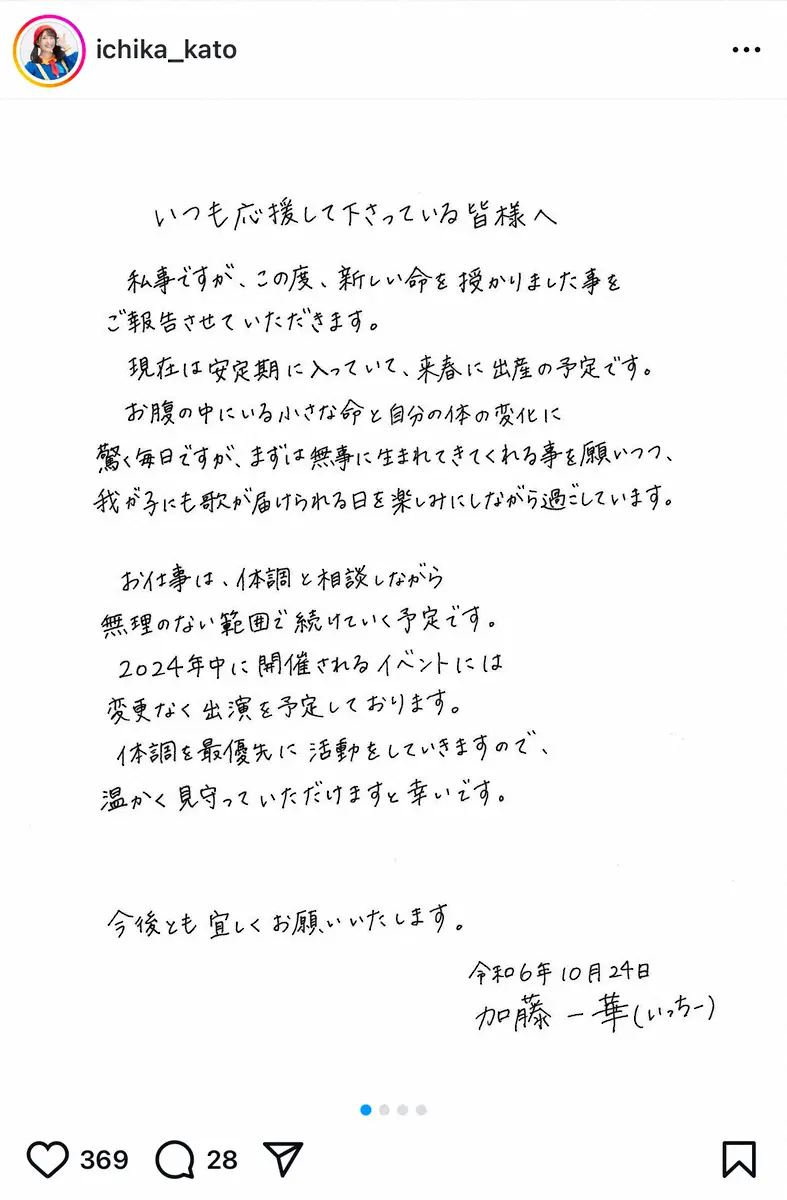 ichika_kato
いつも応援して下さっている皆様へ
私事ですが、この度、新しい命を授かりました事を
ご報告させていただきます。
現在は安定期に入っていて、来春に出産の予定です。
お腹の中にいる小さな命と自分の体の変化に
驚く毎日ですが、まずは無事に生まれてきてくれる事を願いつつ、
我が子にも歌が届けられる日を楽しみにしながら過ごしています。
お仕事は、体調と相談しながら
無理のない範囲で続けていく予定です。
2024年中に開催されるイベントには
変更なく出演を予定しております。
体調を最優先に活動をしていきますので、
温かく見守っていただけますと幸いです。
今後とも宜しくお願いいたします。
令和6年10月24日
加藤一華(いっちー)
369 28